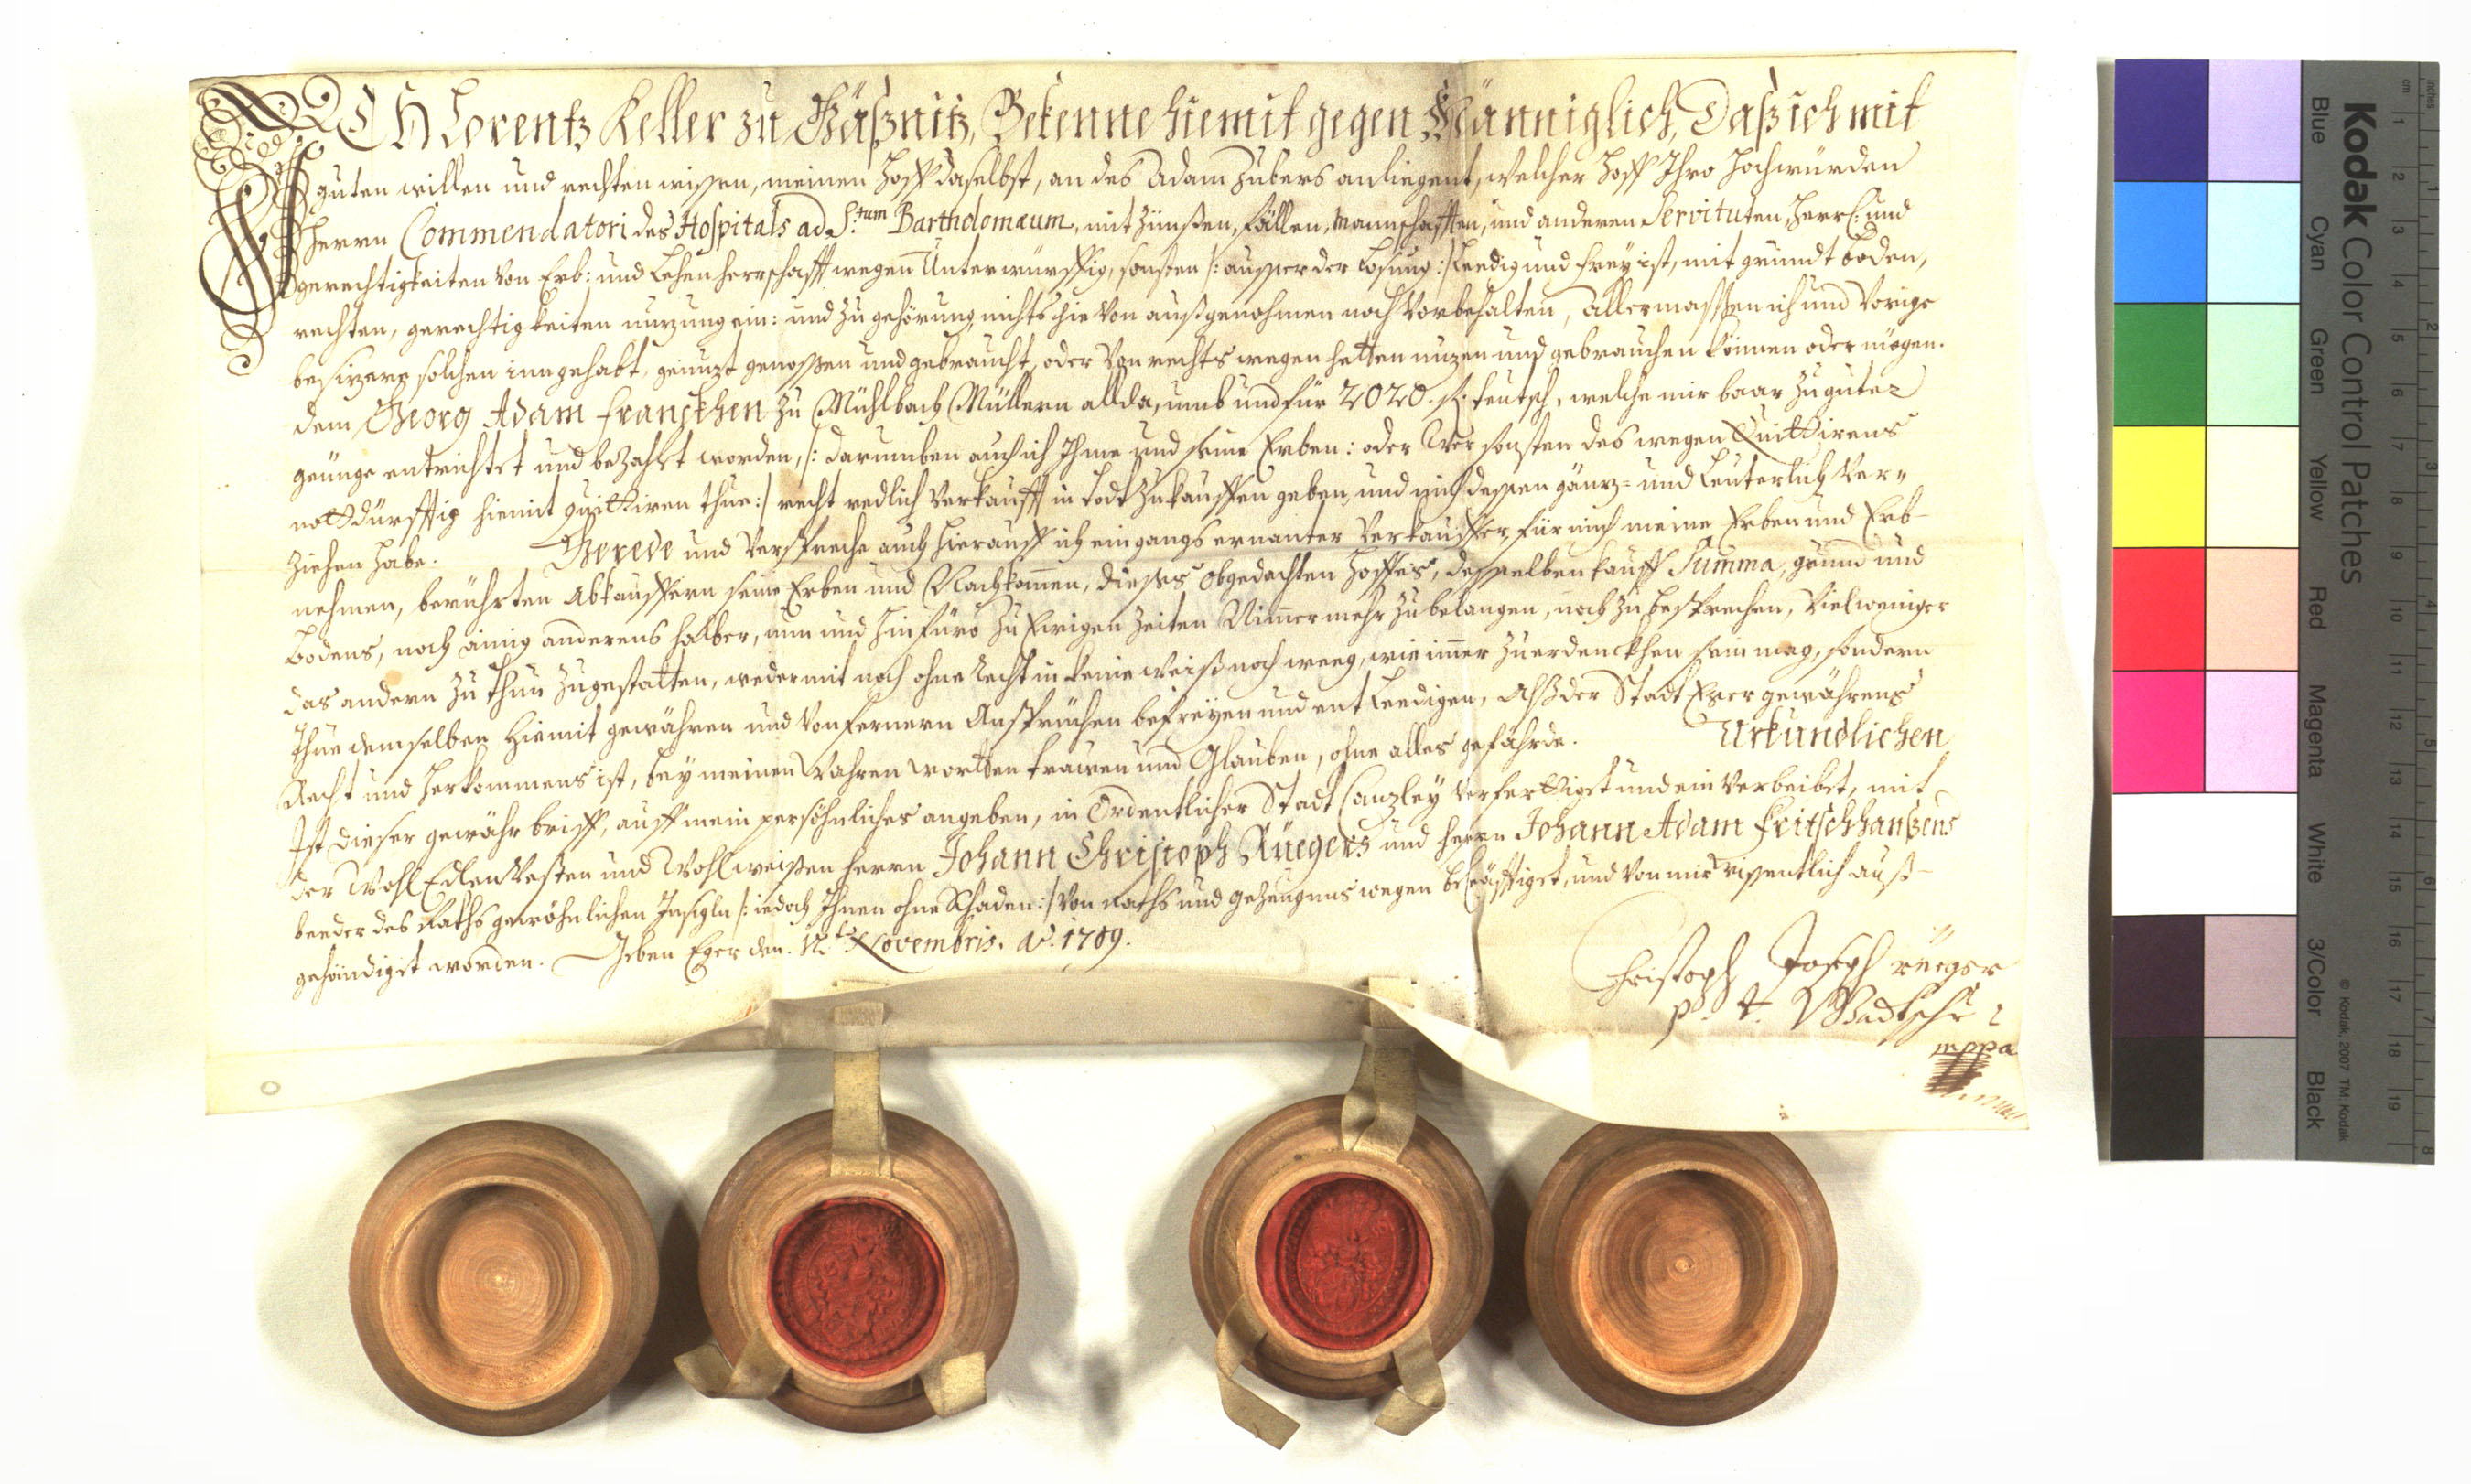 ICH Lorentz Keller zu Gäßnitz, Bekenne hiemit gegen Männiglich, Daß ich mit
guten willen und rechten wissen, meinen Hoff daselbst, an des Adam Zubers anliegent, welcher Hoff Ihro Hochwürden
Herrn Commendatori des Hospitals ad S.tum Bartholomæum, mit Zünßen, fällen, Mannschafften, und anderen Servituten, Herrl: und
gerechtigkeiten von Erb: und Lehenherrschafft wegen Unterwürffig, sonsten /: ausser der Losung :/ Leedig und frey ist, mit grundt boden,
rechten, gerechtigkeiten nuzung ein: und zugehörung, nichts hievon außgenohmen noch Vorbehalten, allermassen ich und Vorige
besizere solchen inngehabt, genuzt genossen und gebraucht, oder Von rechts wegen hetten nuzen und gebrauchen können oder mögen.
dem Georg Adam Franckhen zu Mühlbach Müllern allda, umb und für 2020. fl. teutsch, welche mir baar zu guter
genüge entrichtet und bezahlt worden, /: darumben auch ich Ihme und seine Erben: oder Wer sonsten des wegen Quittirens
nottdürfftig hiemit quittiren thue :/ recht redlich Verkaufft in Todt Zukauffen geben, und mich dessen gänz- und Leuterlich Ver-
ziehen habe. Gerede und Verspreche auch hierauff ich eingangs ernanter Verkauffer, für mich meine Erben und Erb-
nehmen, berührten Abkauffern seine Erben und Nachkomen, dieses obgedachten Hoffes, desselben kauff Summa, grund und
Bodens, noch ainig anderens halber, nun und hinfüro zu Ewigen Zeiten Nimermehr zu belangen, noch zu besprechen, Vielweniger
das andern zu thun zugestatten, weder mit noch ohne Recht in keine weiß noch weeg, wie imer zuerdenckhen sein mag, sondern
Thue demselben Hiemit gewähren und Von fernern Ansprüchen befreyen und entleedigen, Alß der Stadt Eger gewährens
Recht und Herkommens ist, bey meinen Wahren wortten trawen und Glauben, ohne alles gefährde. Urkundlichen
Ist dieser gewähr brieff, auff mein persöhnliches angeben, in Ordentlicher Stadt Canzley Verferttiget und ein Verleibet, mit
der WohlEdlen Vesten und Wohlweißen Herrn Johann Christoph Rüegers und Herrn Johann Adam Fritschhanßens
beeder des Raths gewöhnlichen Insigln /: iedoch Ihnen ohne Schaden :/ Von raths und gezeugnus wegen bekräfftiget, und Von mir wissentlich auß-
gehändiget worden. Geben Eger den. 12.t Novembris. Ao. 1709.
Christoph Joseph rüeger
p. t. Stadtschr
mppa
Kodak Color Control Patches
Blue Cyan Green Yellow Red Magenta White 3/Color Black
© Kodak, 2007 TM: Kodak
cm 1 2 3 4 5 6 7 8 9 10 11 12 13 14 15 16 17 18 19
inches 1 2 3 4 5 6 7 8